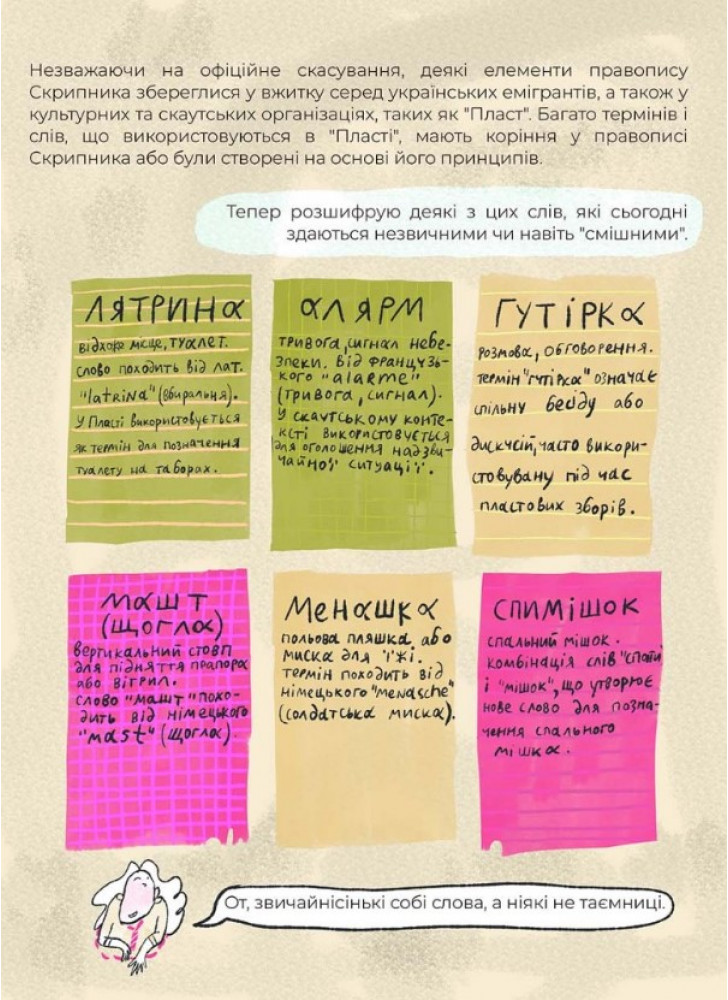 Незважаючи на офіційне скасування, деякі елементи правопису
Скрипника збереглися у вжитку серед українських емігрантів, а також у
культурних та скаутських організаціях, таких як "Пласт". Багато термінів і
слів, що використовуються в "Пласті", мають коріння у правописі
Скрипника або були створені на основі його принципів.
Тепер розшифрую деякі з цих слів, які сьогодні
здаються незвичними чи навіть "смішними".
ЛЯТРИНА
відхоже місце, туалет.
слово походить від лат.
"latrina" (вбиральня).
у Пласті використовується
як термін для позначення
туалету на таборах.
АЛЯРМ
тривога, сигнал небе-
зпеки. від французь-
кого "alarme"
(тривога, сигнал).
у скаутському конте-
ксті використовується
для оголошення надзви-
чайної ситуації.
ГУТІРКА
розмова, обговорення.
термін "гутірка" означає
спільну бесіду або
дискусії, часто викори-
стовувану під час
пластових зборів.
МАШТ
(ЩОГЛА)
вертикальний стовп
для підняття прапора
або вітрил.
слово "машт" похо-
дить від німецького
"mast" (щогла)
МЕНАШКА
польова пляшка або
миска для їжі.
термін походить від
німецького "menasche"
(солдатська миска).
СПИМІШОК
спальний мішок.
комбінація слів "спати
і "мішок", що утворює
нове слово для позна-
чення спального
мішка.
От, звичайнісінькі собі слова, а ніякі не таємниці.